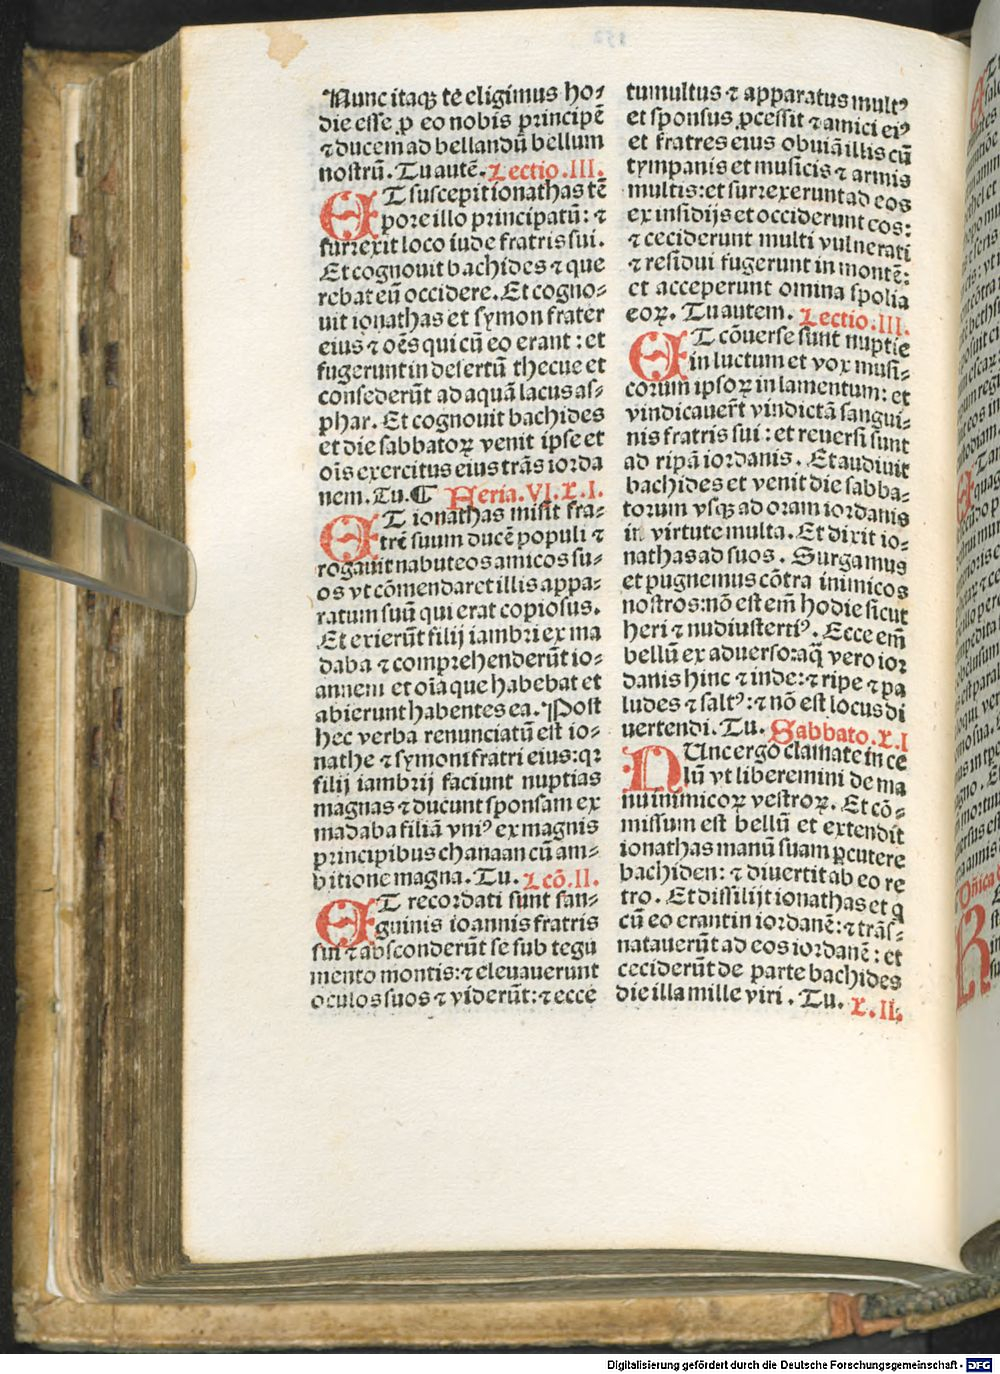 Nunc itaqꝫ te eligimus ho⸗
die esse ꝓ eo nobis principē
⁊ ducem ad bellandū bellum
nostrū. Tu autē. Lectio .III.
ET suscepit ionathas tē
pore illo principatū: ⁊
surrexit loco iude fratris sui.
Et cognouit bachides ⁊ que
rebat eū occidere. Et cogno⸗
uit ionathas et symon frater
eius ⁊ oēs qui cū eo erant: et
fugerunt in desertū thecue et
consederūt ad aquā lacus as⸗
phar. Et cognouit bachides
et die sabbatoꝝ venit ipse et
oīs exercitus eius trās iorda
nem. Tu. ¶ Feria .VI. L. I.
ET ionathas misit fra⸗
trē suum ducē populi ⁊
rogauit nabuteos amicos su⸗
os vt cōmendaret illis appa⸗
ratum suū qui erat copiosus.
Et exierūt filij iambri ex ma
daba ⁊ comprehenderūt io⸗
annem et oīa que habebat et
abierunt habentes ea. Post
hec verba renunciatū est io⸗
nathe ⁊ symoni fratri eius: qꝛ
filij iambrij faciunt nuptias
magnas ⁊ ducunt sponsam ex
madaba filiā vniꝰ ex magnis
principibus chanaan cū am⸗
bitione magna. Tu. Lcō. II.
ET recordati sunt san⸗
guinis ioannis fratris
sui ⁊ absconderūt se sub tegu
mento montis: ⁊ eleuauerunt
oculos suos ⁊ viderūt: ⁊ ecce
tumultus ⁊ apparatus multꝰ
et sponsus ꝓcessit ⁊ amici eiꝰ
et fratres eius obuiā illis cū
tympanis et musicis ⁊ armis
multis: et surrexerunt ad eos
ex insidijs et occiderunt eos:
⁊ ceciderunt multi vulnerati
⁊ residui fugerunt in montē:
et acceperunt omina spolia
eoꝝ. Tu autem. Lectio .III.
ET cōuerse sunt nuptie
in luctum et vox musi⸗
corum ipsoꝝ in lamentum: et
vindicauerūt vindictā sangui⸗
nis fratris sui: et reuersi sunt
ad ripā iordanis. Et audiuit
bachides et venit die sabba⸗
torum vsqꝫ ad oram iordanis
in virtute multa. Et dixit io⸗
nathas ad suos. Surgamus
et pugnemus cōtra inimicos
nostros: nō est em̄ hodie sicut
heri ⁊ nudiustertiꝰ. Ecce em̄
bellū ex aduerso: aq̄ vero ior
danis hinc ⁊ inde: ⁊ ripe ⁊ pa
ludes ⁊ saltꝰ: ⁊ nō est locus di
uertendi. Tu. Sabbato. L. I
NUnc ergo clamate in ce
lū vt liberemini de ma
nu inimicoꝝ vestroꝝ. Et cō⸗
missum est bellū et extendit
ionathas manū suam ꝑcutere
bachiden: ⁊ diuertit ab eo re
tro. Et dissilijt ionathas et q̄
cū eo erant in iordanē: ⁊ trās⸗
natauerūt ad eos iordanē: et
ceciderūt de parte bachides
die illa mille viri. Tu. L. II.
Digitalisierung gefördert durch die Deutsche Forschungsgemeinschaft - DFG